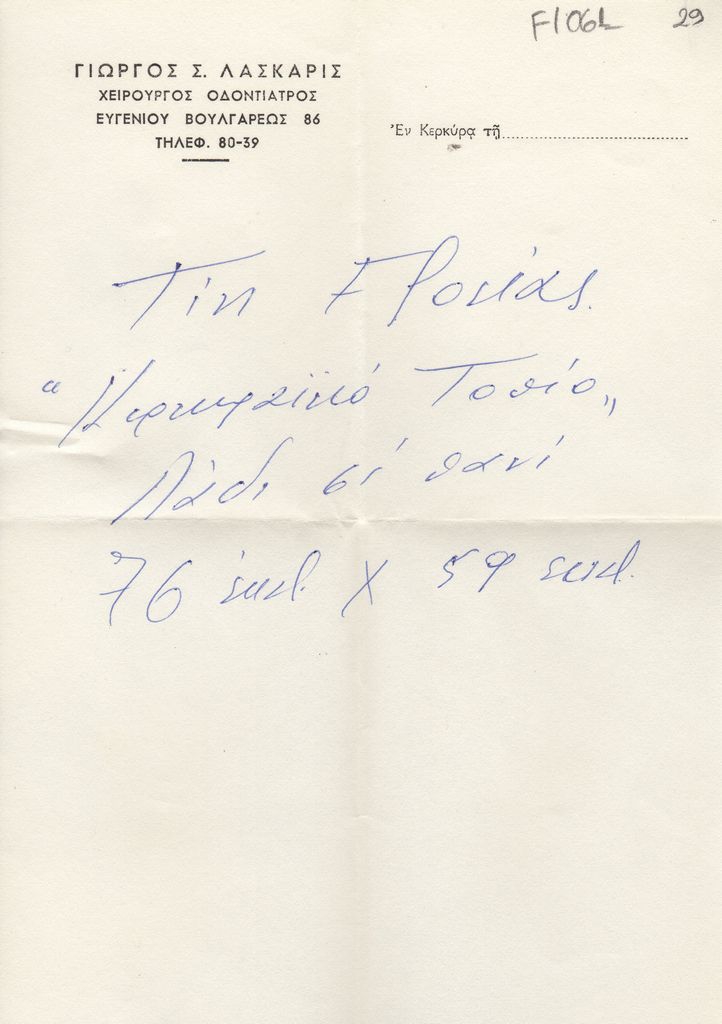 F/06L 29
ΓΙΩΡΓΟΣ Σ. ΛΑΣΚΑΡΙΣ
ΧΕΙΡΟΥΡΓΟΣ ΟΔΟΝΤΙΑΤΡΟΣ
ΕΥΓΕΝΙΟΥ ΒΟΥΛΓΑΡΕΩΣ 86
ΤΗΛΕΦ. 80-39
Ἐν Κερκύρᾳ τῇ
"Κερκυραϊκό Τοπίο"
Λάδι σέ πανί
76 ἑκ. Χ 59 ἑκ.